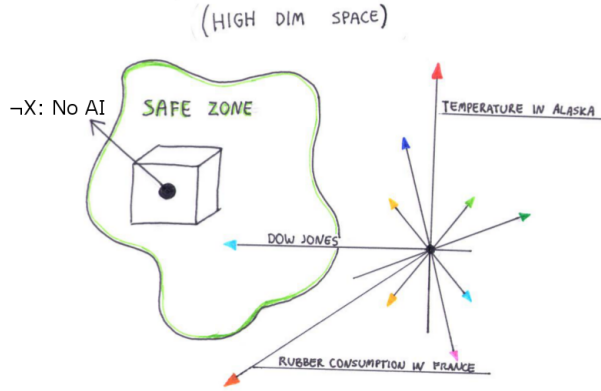 (HIGH DIM SPACE)
¬X: No AI
SAFE ZONE
TEMPERATURE IN ALASKA
DOW JONES
RUBBER CONSUMPTION IN FRANCE